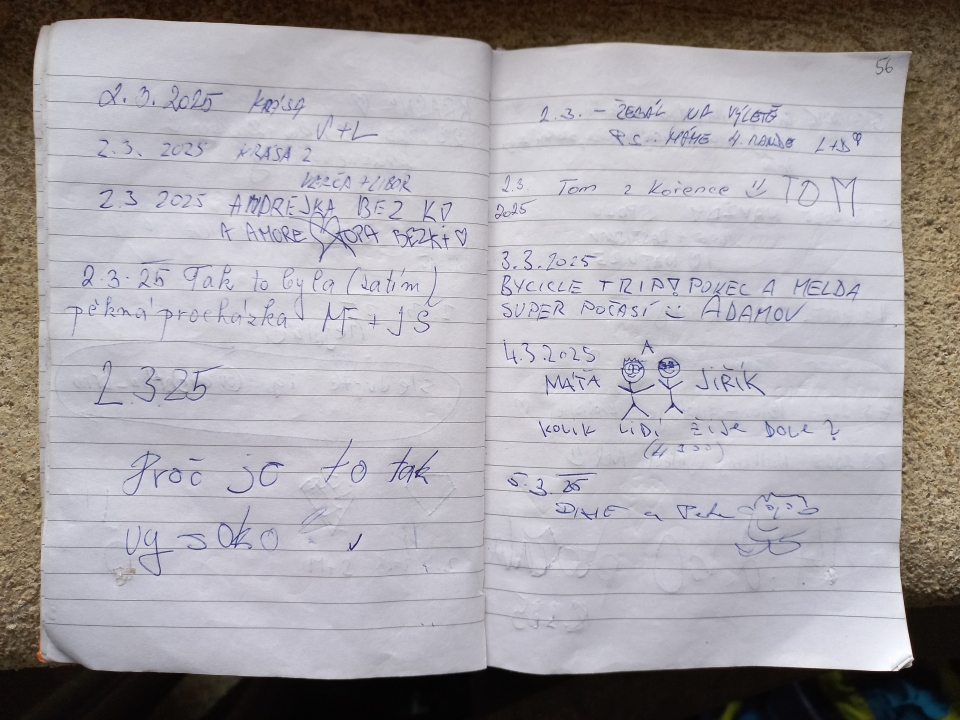 2.3.2025 KRÁSA
V+L
2.3. 2025 KRÁSA 2
+ LIBOR
2.3 2025 ANDREJKA BEZ KŮ
A AMORE OPA BEZKŮ ♡
2.3.25 Tak to byla (zatím)
pěkná procházka MF + JŠ
2.3.25
Proč je to tak
vysoko
56
2.3. - ŽEBÁL NA VÝLETĚ
P.S.. MÁME 4. RANDE L+D ♡
2.3. Tom z Kořence TOM
2025
3.3.2025
BYCICLE TRIP! POKEC A MELDA
SUPER POČASÍ ADAMOV
4.3.2025 A
MÁŤA JIŘÍK
KOLIK LIDÍ ŽIJE DOLE?
5.3.25
a